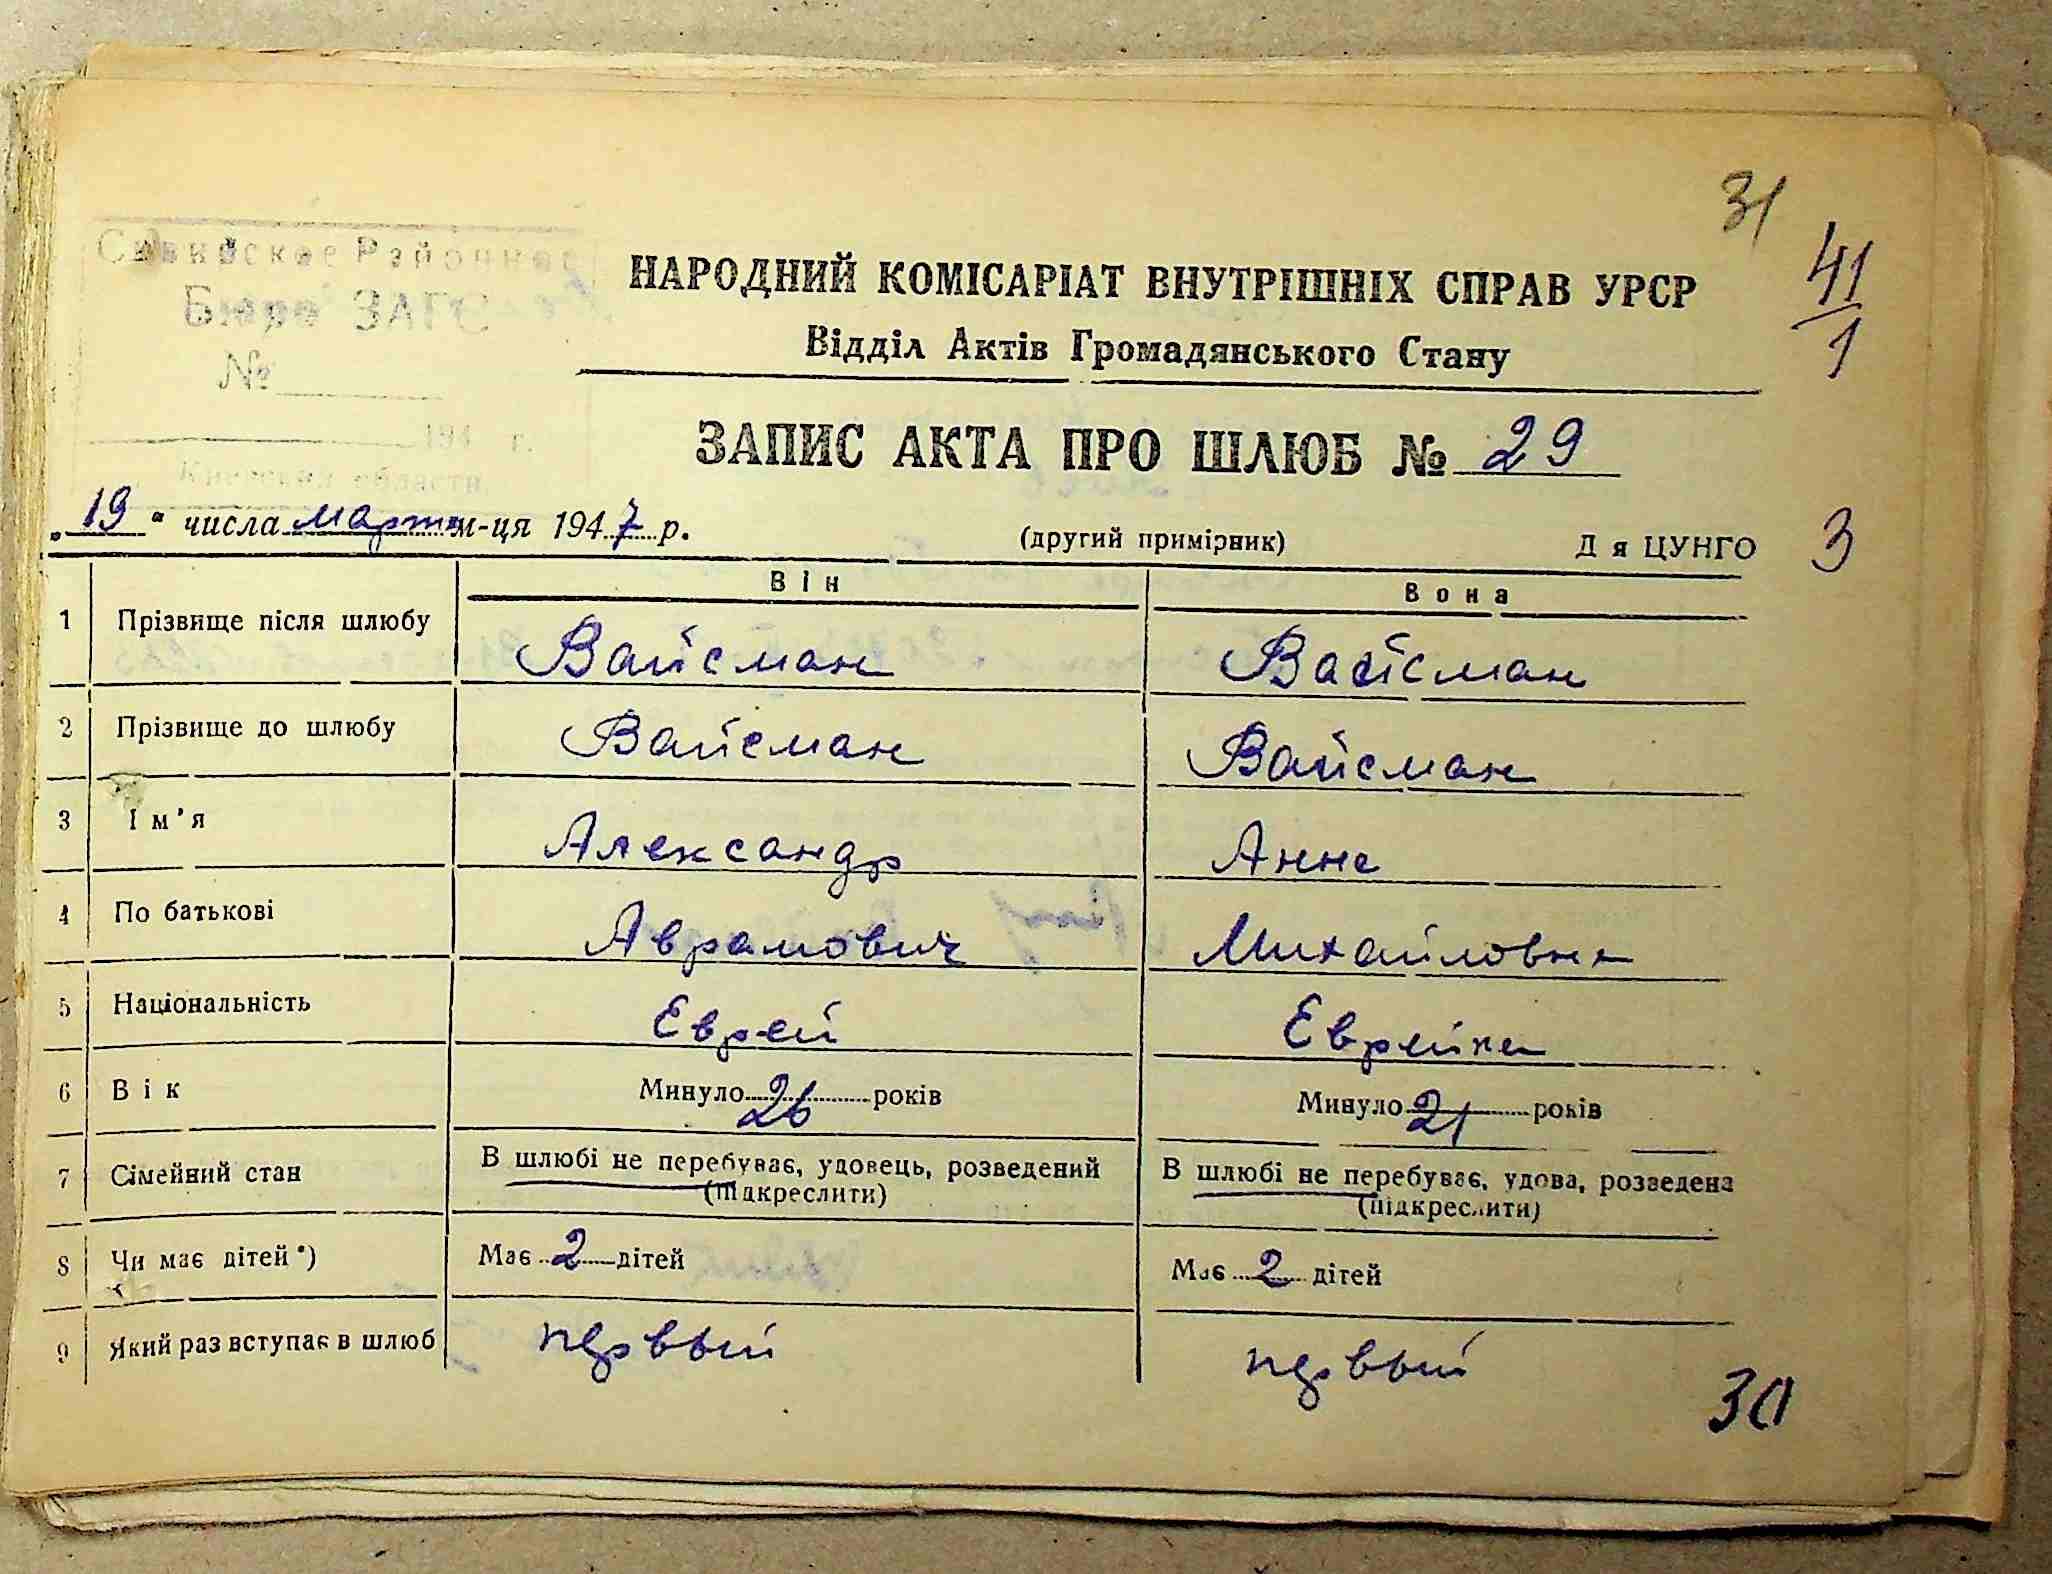 31
Районное
Бюро ЗАГС
№
194 г.
НАРОДНИЙ КОМІСАРІАТ ВНУТРІШНІХ СПРАВ УРСР
41
1
Відділ Актів Громадянського Стану
ЗАПИС АКТА ПРО ШЛЮБ № 29
„19" числа марта м-ця 1947 р. (другий примірник) Д я ЦУНГО 3
Він Вона
1 Прізвище після шлюбу Вайсман Вайсман
2 Прізвище до шлюбу Вайсман Вайсман
3 Ім'я Александр Анна
4 По батькові Аврамович Михайловна
5 Національність Еврей Еврейка
6 Вік Минуло 26 років Минуло 21 років
7 Сімейний стан В шлюбі не перебуває, удовець, розведений (підкреслити) В шлюбі не перебуває, удова, розведена (підкреслити)
8 Чи має дітей*) Має 2 дітей Має 2 дітей
9 Який раз вступає в шлюб первый первый
30